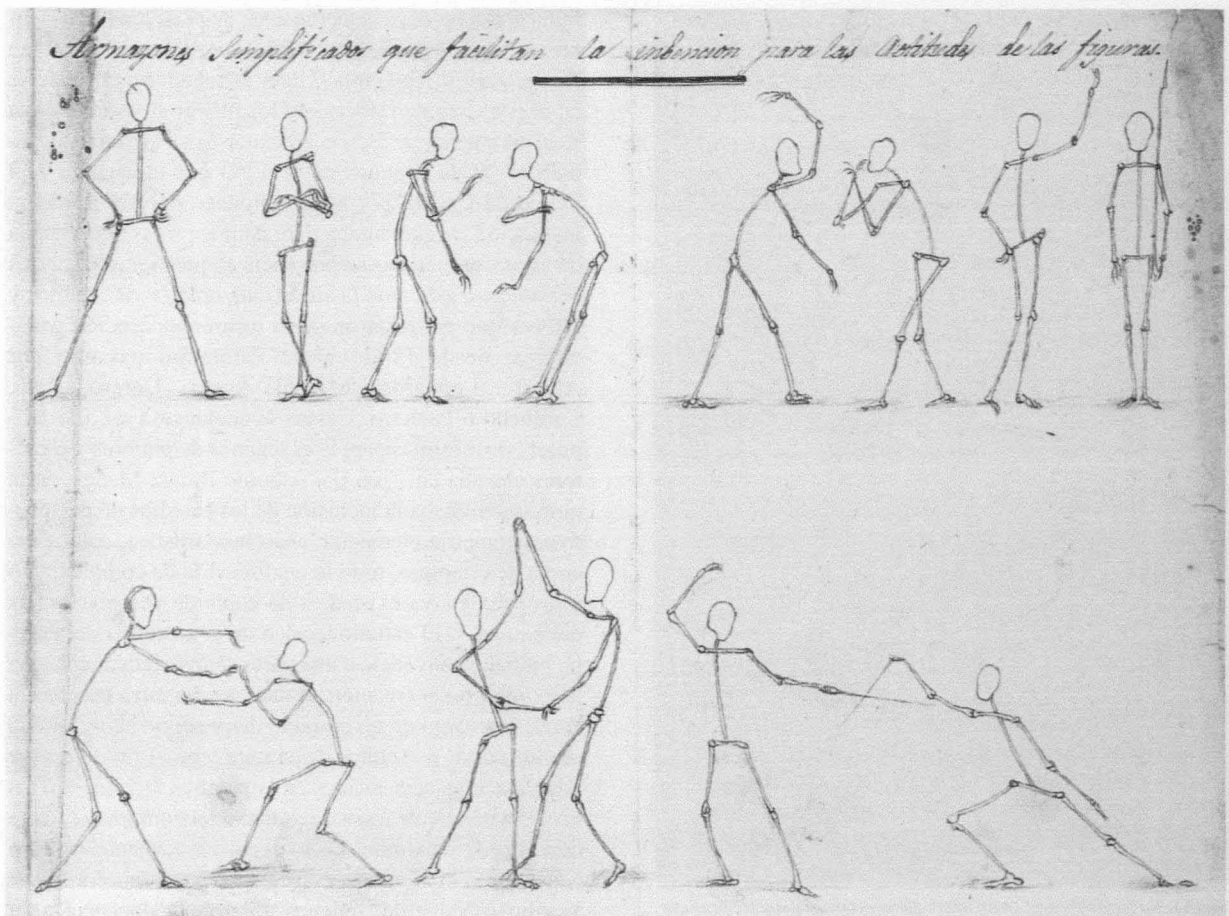 Armazones Simplificados que facilitan la inbencion para las Actitudes de las figuras.